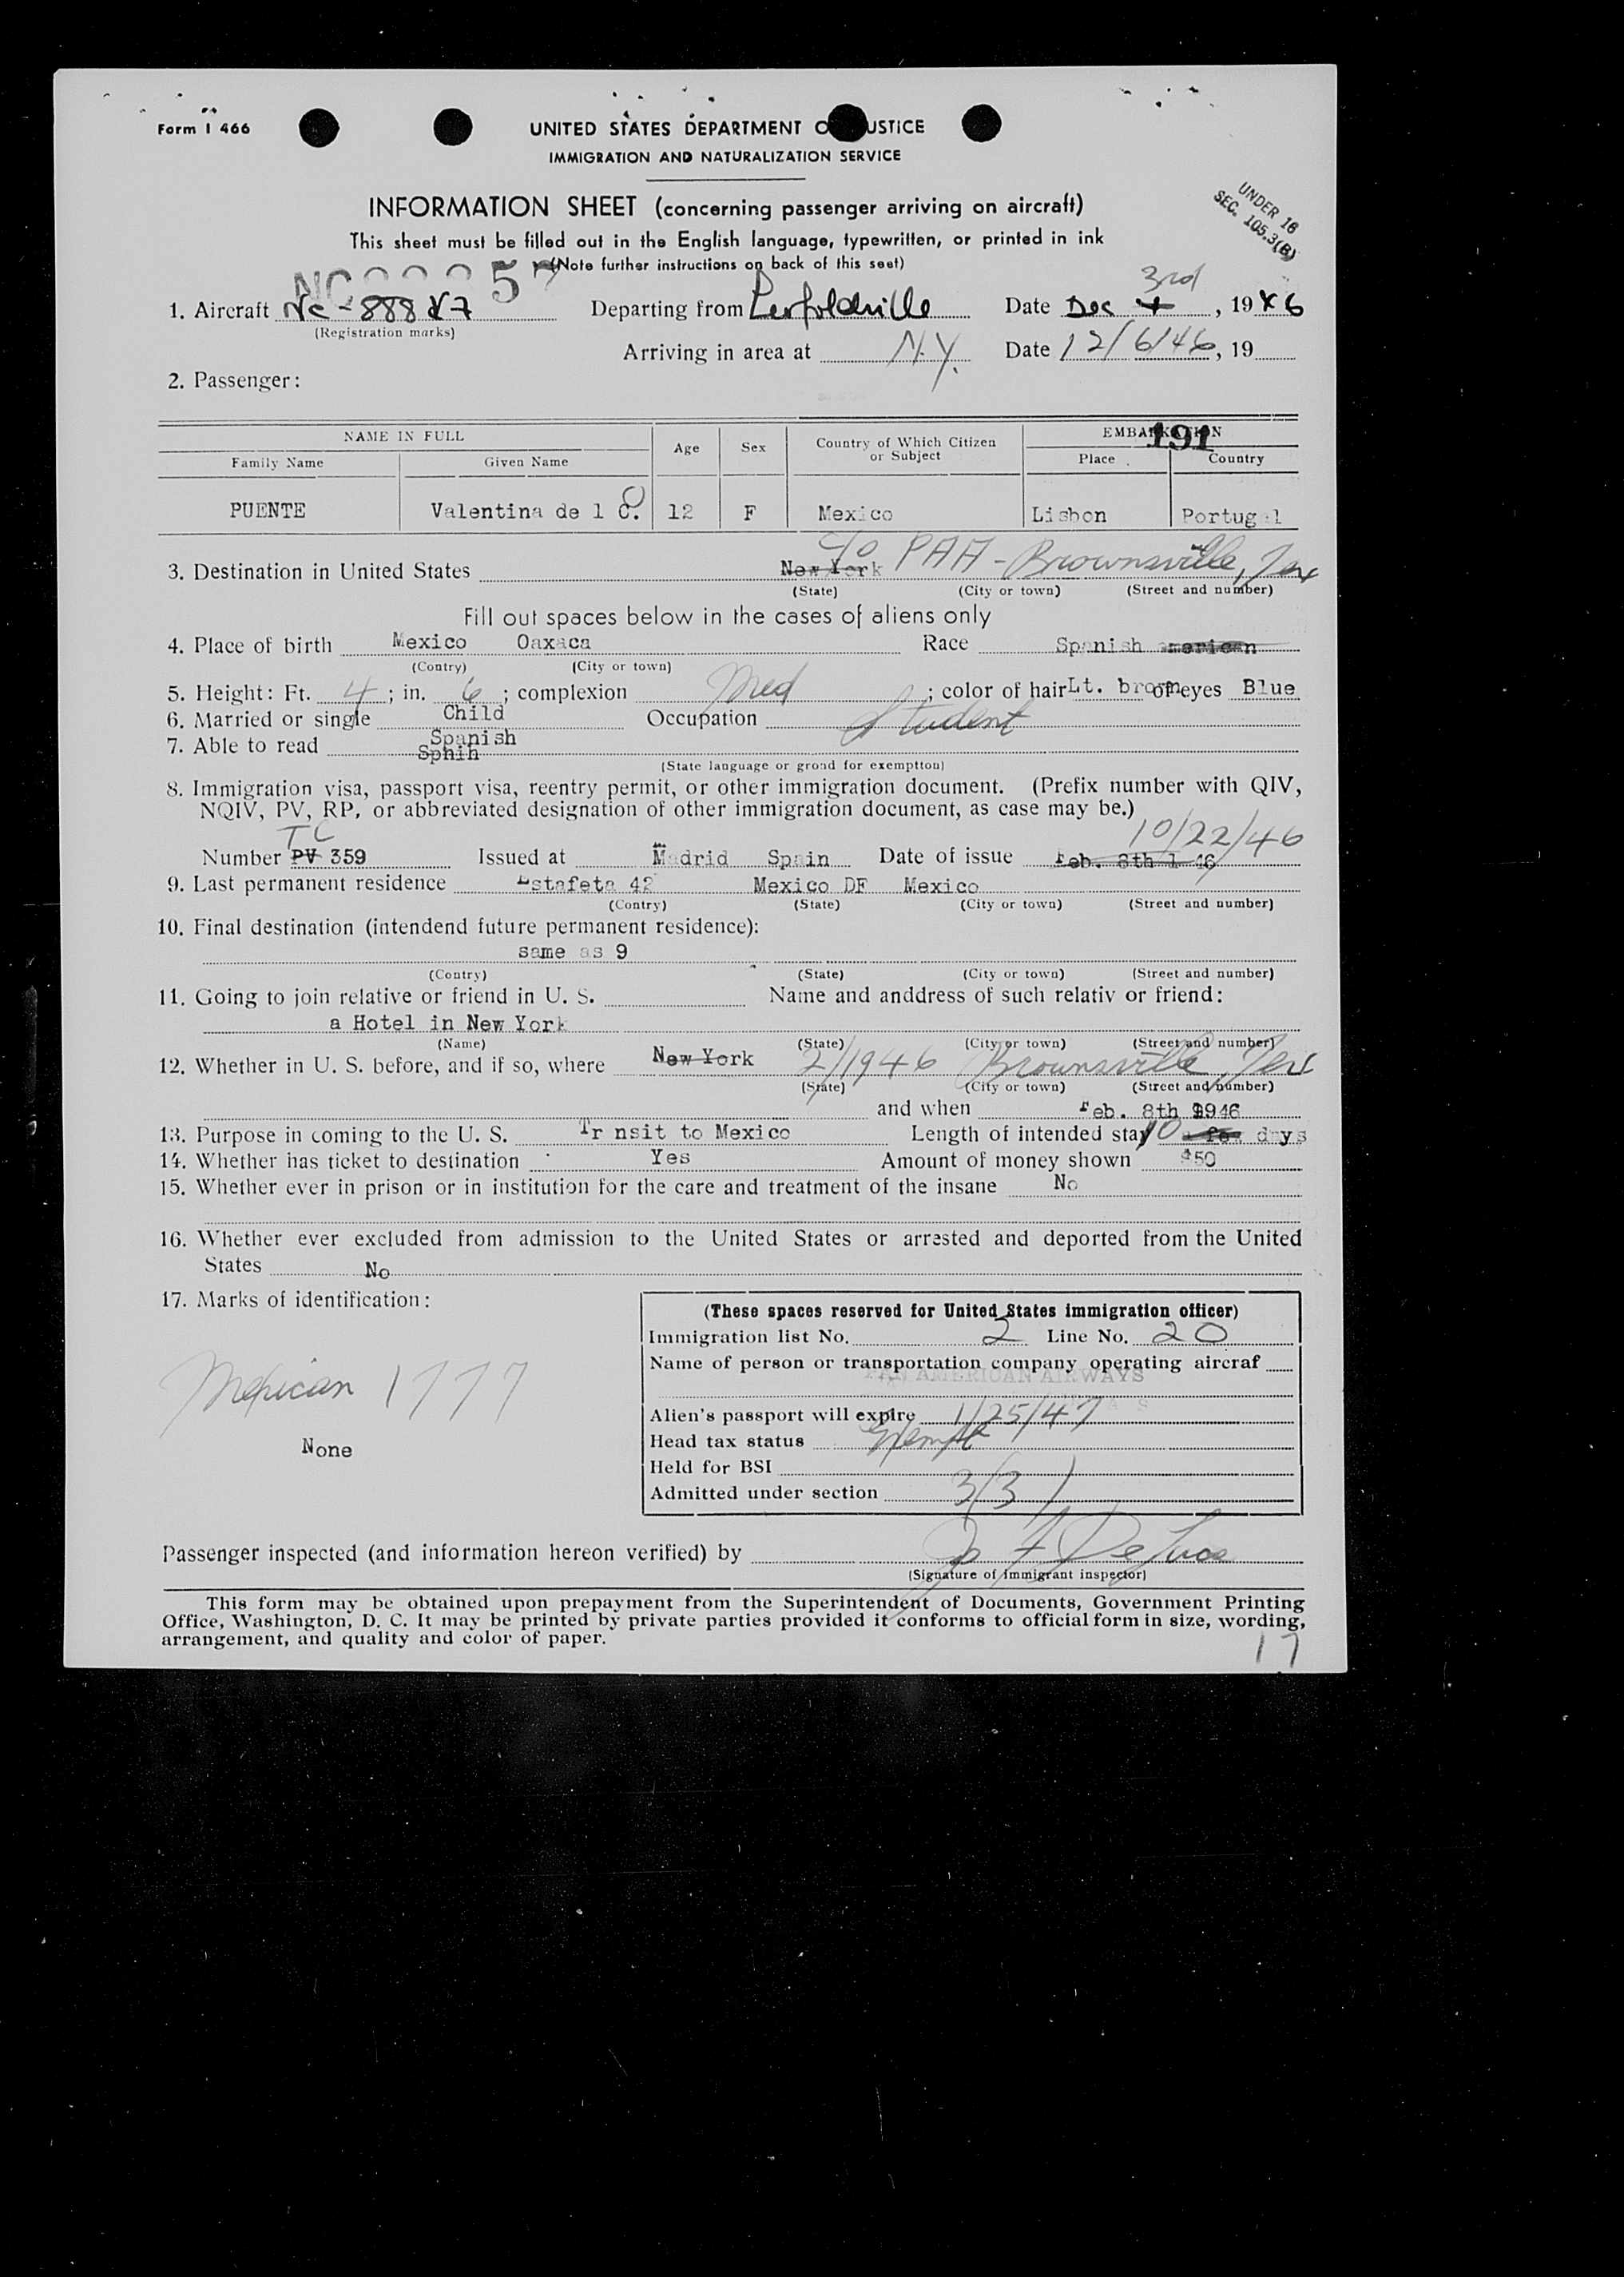 Form I 466
UNITED STATES DEPARTMENT O USTICE
IMMIGRATION AND NATURALIZATION SERVICE
INFORMATION SHEET (concerning passenger arriving on aircraft)
UNDER 16
SEC. 105.3(B)
This sheet must be filled out in the English language, typewritten, or printed in ink
(Note further instructions on back of this seet)
3rd
1. Aircraft Nc-888 Departing from Date Dec , 19 46
(Registration marks)
Arriving in area at N.Y. Date 12/6/46, 19
2. Passenger:
NAME IN FULL Age Sex Country of Which Citizen or Subject EMBARKATION 191
Family Name Given Name Place Country
PUENTE Valentina de l C. O 12 F Mexico Lisbon Portugal
3. Destination in United States New York c/o PAA - Brownsville, Tex
(State) (City or town) (Street and number)
Fill out spaces below in the cases of aliens only
4. Place of birth Mexico Oaxaca Race Spanish american
(Contry) (City or town)
5. Height: Ft. 4; in. 6; complexion Med; color of hair Lt. brown of eyes Blue
6. Married or single Child Occupation Student
7. Able to read Spanish
Sphih
(State language or grond for exemptton)
8. Immigration visa, passport visa, reentry permit, or other immigration document. (Prefix number with QIV,
NQIV, PV, RP, or abbreviated designation of other immigration document, as case may be.)
TC 10/22/46
Number PV 359 Issued at Madrid Spain Date of issue Feb. 8th 1 46
9. Last permanent residence Estafeta 42 Mexico DF Mexico
(Contry) (State) (City or town) (Street and number)
10. Final destination (intendend future permanent residence):
same as 9
(Contry) (State) (City or town) (Street and number)
11. Going to join relative or friend in U. S. Name and anddress of such relativ or friend:
a Hotel in New York
(Name) (State) (City or town) (Street and number)
12. Whether in U. S. before, and if so, where New York 2/1946 Brownsville, Tex
(State) (City or town) (Street and number)
and when Feb. 8th 1946
13. Purpose in coming to the U. S. Tr nsit to Mexico Length of intended stay 10 a few days
14. Whether has ticket to destination Yes Amount of money shown $50
15. Whether ever in prison or in institution for the care and treatment of the insane No
16. Whether ever excluded from admission to the United States or arrested and deported from the United
States No
17. Marks of identification:
Mexican 1777
None
(These spaces reserved for United States immigration officer)
Immigration list No. 2 Line No. 20
Name of person or transportation company operating aircraf
PAN AMERICAN AIRWAYS
Alien's passport will expire 1/25/47
Head tax status Exempt
Held for BSI
Admitted under section 3/3)
Passenger inspected (and information hereon verified) by
(Signature of immigrant inspector)
This form may be obtained upon prepayment from the Superintendent of Documents, Government Printing
Office, Washington, D. C. It may be printed by private parties provided it conforms to official form in size, wording,
arrangement, and quality and color of paper.
17